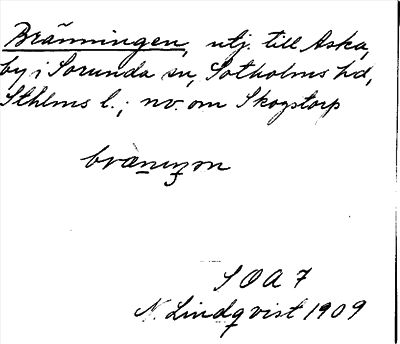 Bränningen, utj. till Aska,
by i Sorunda sn, Sotholms hd,
Sthlms l.; nv. om Skogstorp
S O A 7
N. Lindqvist 1909